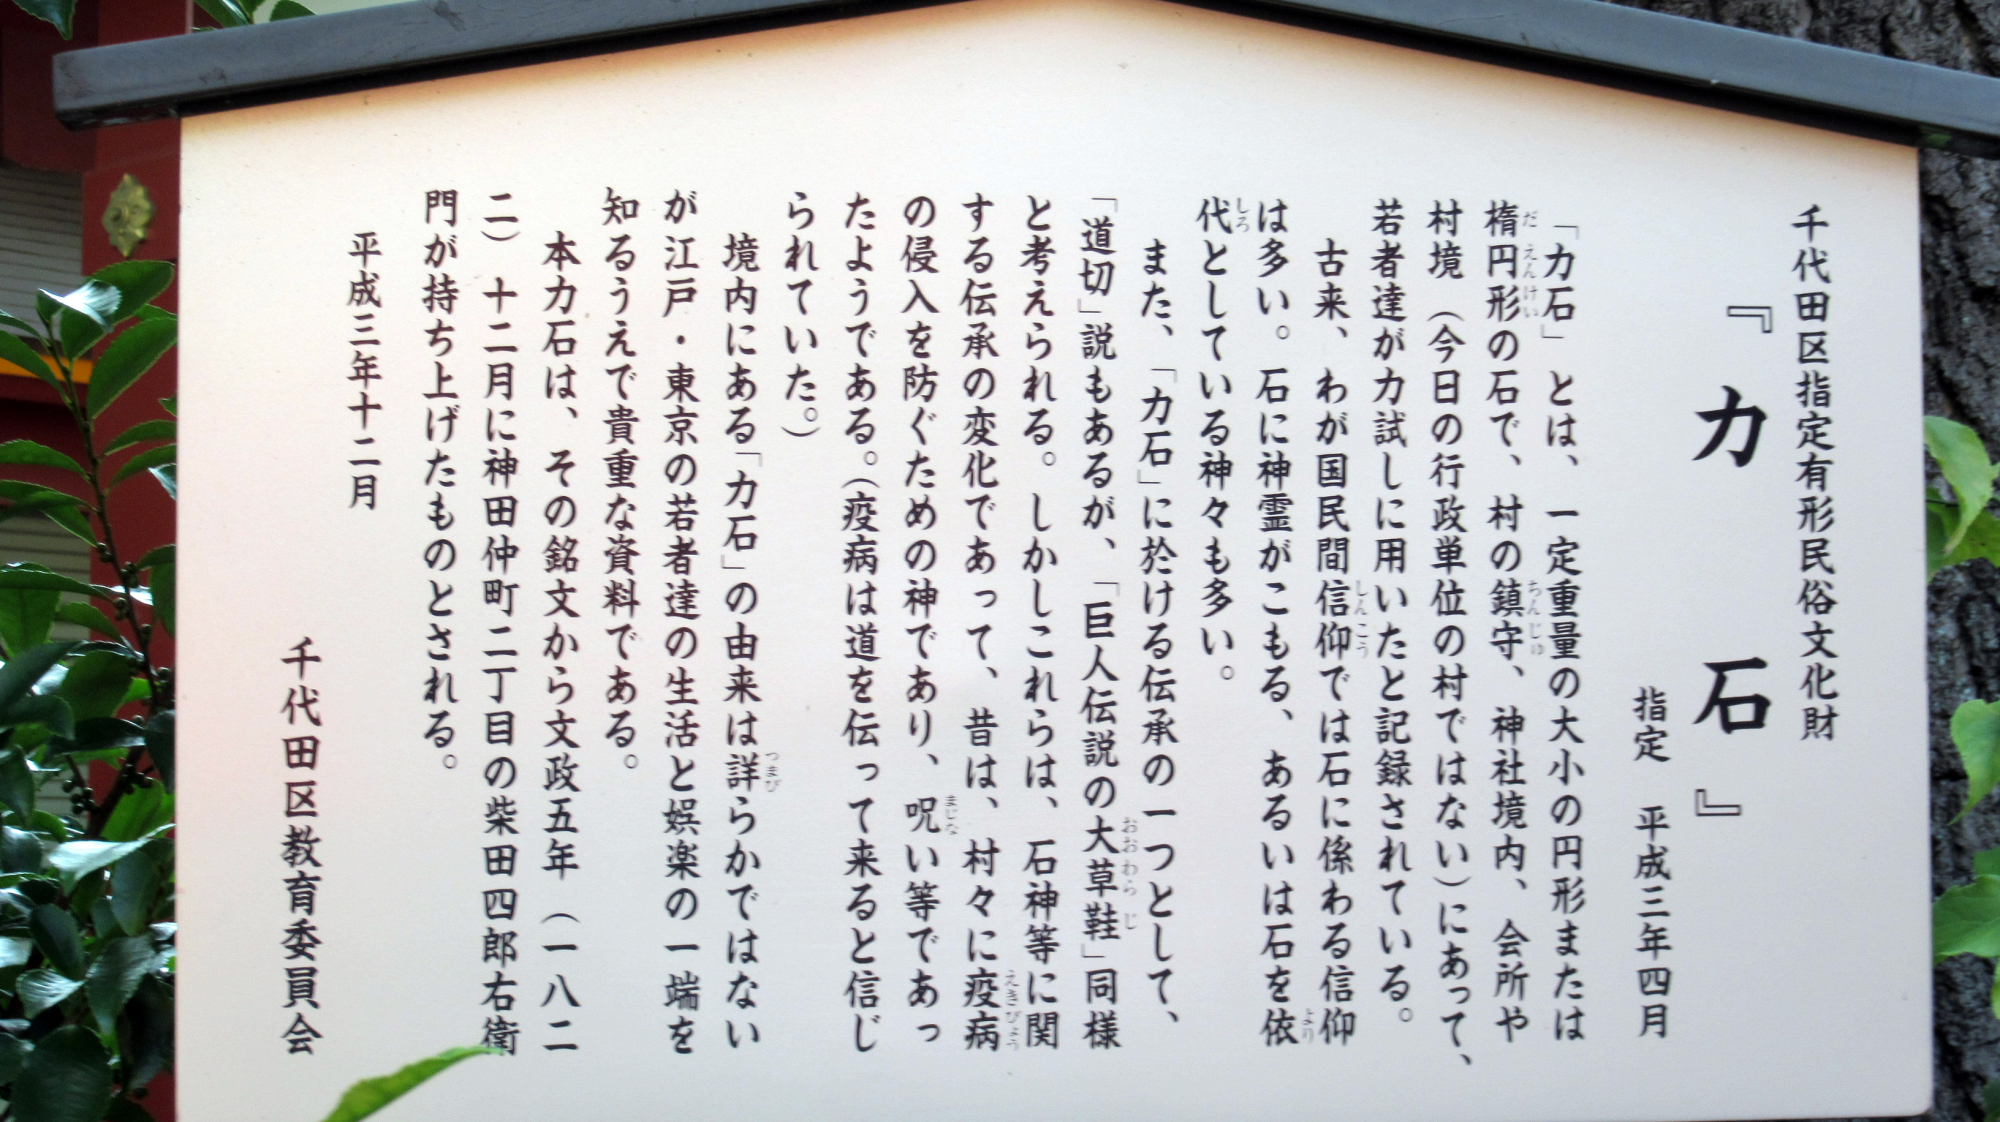 千代田区指定有形民俗文化財
『力石』
指定 平成三年四月
「力石」とは、一定重量の大小の円形または
楕円形の石で、村の鎮守、神社境内、会所や
村境（今日の行政単位の村ではない）にあって、
若者達が力試しに用いたと記録されている。
古来、わが国民間信仰では石に係わる信仰
は多い。石に神霊がこもる、あるいは石を依
代としている神々も多い。
また、「力石」に於ける伝承の一つとして、
「道切」説もあるが、「巨人伝説の大草鞋」同様
と考えられる。しかしこれらは、石神等に関
する伝承の変化であって、昔は、村々に疫病
の侵入を防ぐための神であり、呪い等であっ
たようである。（疫病は道を伝って来ると信じ
られていた。）
境内にある「力石」の由来は詳らかではない
が江戸・東京の若者達の生活と娯楽の一端を
知るうえで貴重な資料である。
本力石は、その銘文から文政五年（一八二
二）十二月に神田仲町二丁目の柴田四郎右衛
門が持ち上げたものとされる。
平成三年十二月
千代田区教育委員会